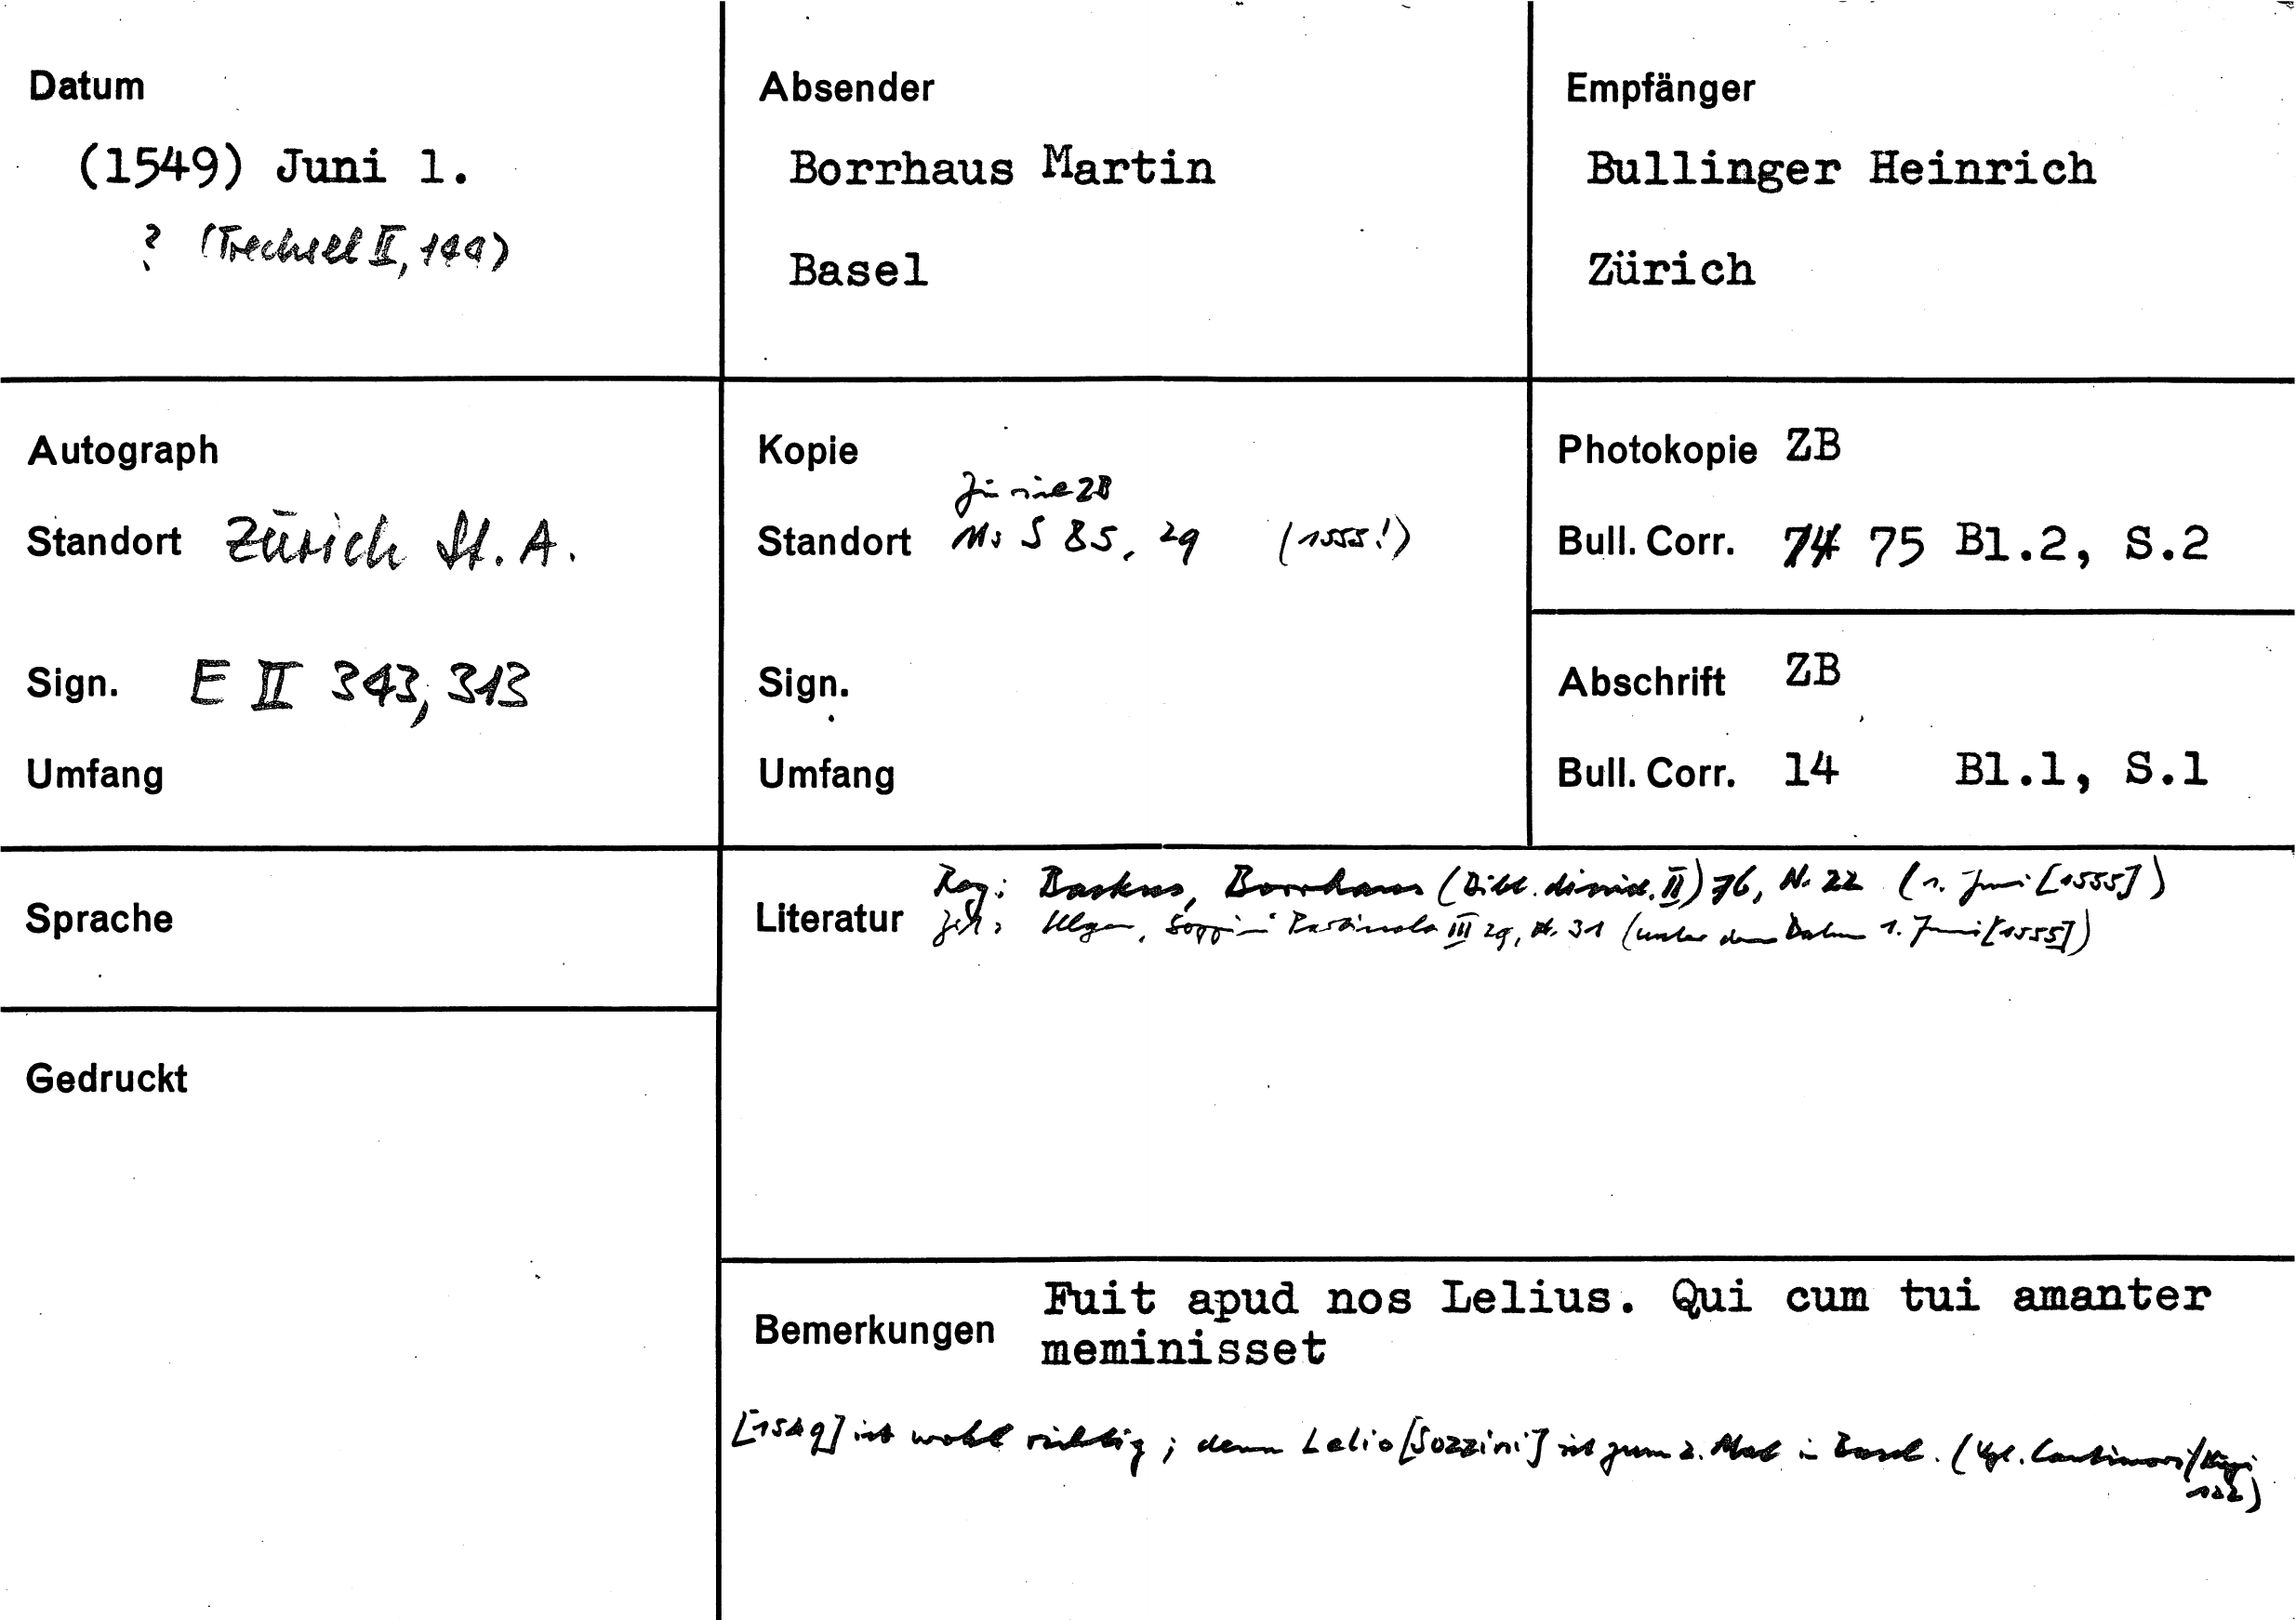 Datum
(1549) Juni 1.
? (Trechsel II, 144)
Absender
Borrhaus Martin
Basel
Empfänger
Bullinger Heinrich
Zürich
Autograph
Standort Zürich St. A.
Sign. E II 343, 313
Umfang
Kopie
Zürich ZB
Standort Ms S 85, 29 (1555!)
Sign.
Umfang
Photokopie ZB
Bull. Corr. 74 75 Bl.2, S.2
Abschrift ZB
Bull. Corr. 14 Bl.1, S.1
Sprache
Gedruckt
Reg: Backus, Borrhaus (Bibl. dissid. II) 76, Nr. 22 (1. Juni [1555])
Literatur Zit: III 29, N. 31 (unter dem Datum 1. Juni [1555])
Bemerkungen Fuit apud nos Lelius. Qui cum tui amanter
meminisset
[1549] ist wohl richtig; denn Lelio [Sozzini] ist zum 2. Mal in Basel. (Vgl. Cantimori/
122)